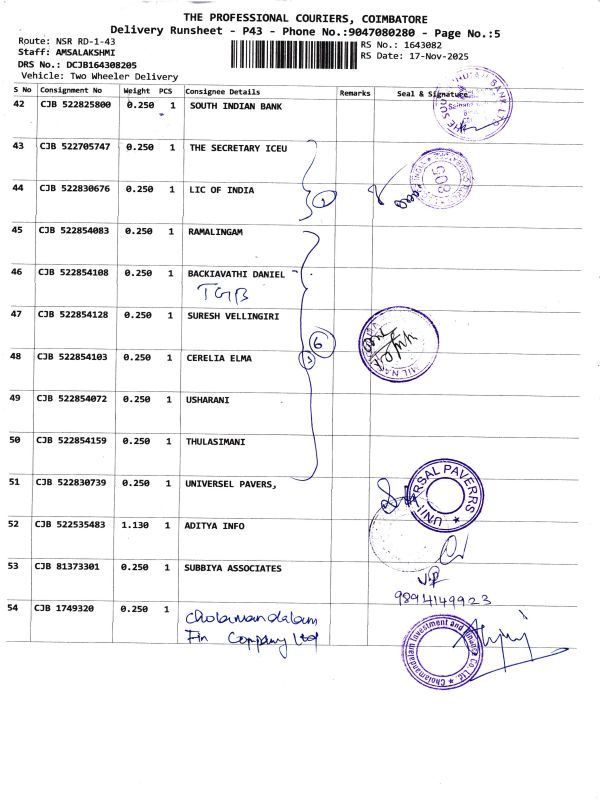 THE PROFESSIONAL COURIERS, COIMBATORE
Delivery Runsheet - P43 - Phone No.:9047080280 - Page No.:5
Route: NSR RD-1-43
Staff: AMSALAKSHMI
DRS No.: DCJB164308205
Vehicle: Two Wheeler Delivery
RS No.: 1643082
RS Date: 17-Nov-2025
S No Consignment No Weight PCS Consignee Details Remarks Seal & Signature
42 CJB 522825800 0.250 1 SOUTH INDIAN BANK
43 CJB 522705747 0.250 1 THE SECRETARY ICEU
44 CJB 522830676 0.250 1 LIC OF INDIA
2
305
45 CJB 522854083 0.250 1 RAMALINGAM
46 CJB 522854108 0.250 1 BACKIAVATHI DANIEL
TGB
47 CJB 522854128 0.250 1 SURESH VELLINGIRI
6
48 CJB 522854103 0.250 1 CERELIA ELMA
49 CJB 522854072 0.250 1 USHARANI
50 CJB 522854159 0.250 1 THULASIMANI
51 CJB 522830739 0.250 1 UNIVERSEL PAVERS,
UNIVERSAL PAVERRS
52 CJB 522535483 1.130 1 ADITYA INFO
53 CJB 81373301 0.250 1 SUBBIYA ASSOCIATES
V.P
9894149923
54 CJB 1749320 0.250 1 Cholamandalam
Fin Coppany Ltd
Cholamandalam Investment and Finance Co. Ltd.